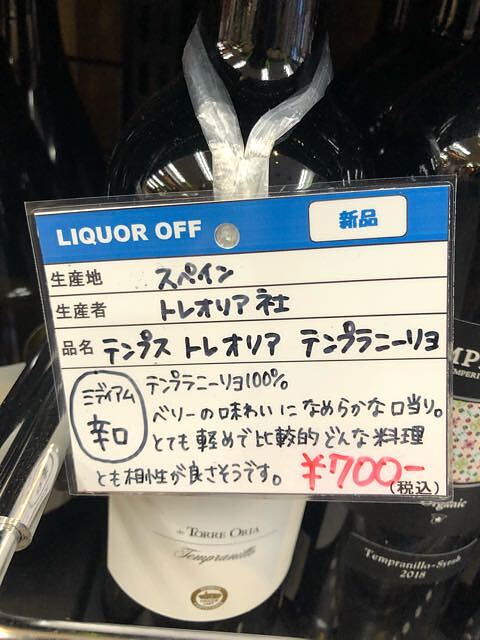 LIQUOR OFF 新品
生産地 スペイン
生産者 トレオリア社
品名 テンプス トレオリア テンプラニーリョ
ミディアム
辛口
テンプラニーリョ100%
ベリーの味わいになめらかな口当り。
とても軽めで比較的どんな料理
とも相性が良さそうです。 ¥700-
(税込)
de TORRE ORIA
Tempranillo
Organic
Tempranillo-Syrah
2018